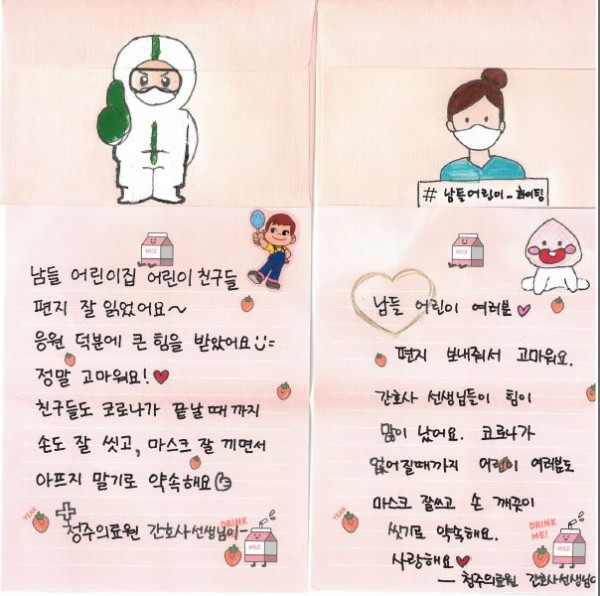 남들 어린이집 어린이 친구들
편지 잘 읽었어요~
응원 덕분에 큰 힘을 받았어요
정말 고마워요!
친구들도 코로나가 끝날 때 까지
손도 잘 씻고, 마스크 잘 끼면서
아프지 말기로 약속해요
청주의료원 간호사선생님이-
YEAH
DRINK ME!
MILK
MILK
# 남들어린이 - 화이팅
남들 어린이 여러분
편지 보내줘서 고마워요.
간호사 선생님들이 힘이
많이 났어요. 코로나가
없어질때까지 어린이 여러분도
마스크 잘쓰고 손 깨끗이
씻기로 약속해요.
사랑해요
— 청주의료원 간호사선생님
YEAH
DRINK ME!
MILK
MILK